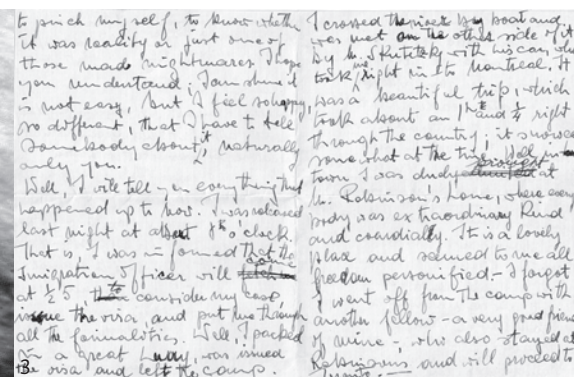 to pinch myself, to know whether
it was reality or just one of
those made nightmares. I hope
you understand; I am sure it
is not easy, but I feel so happy,
so different, that I have to tell
somebody about it, naturally
only you.
Well, I will tell you everything that
happened up to now. I was released
last night at about 8 o'clock.
That is, I was informed that the
Imigration Officer will come
at ½ 5 to consider my case,
issue the visa, and put me through
all the formalities. Well, I packed
in a great hurry, was issued
the visa and left the camp.
I crossed the river by boat and
was met on the other side of it
by Mr. with his car, who
took me right in to Montreal. It
was a beautiful trip, which
took about an 1 hr and ¼ right
through the country; it snowed
somewhat at the time. Well, in
town I was duly brought at
Mr. Robinson's home, where every
body was extraordinary kind
and coordially. It is a lovely
place and seemed to me all
freedom personified – I forgot
I went off from the camp with
another fellow – a very good friend
of mine –, who also stayed at
Robinsons and will proceed to
3